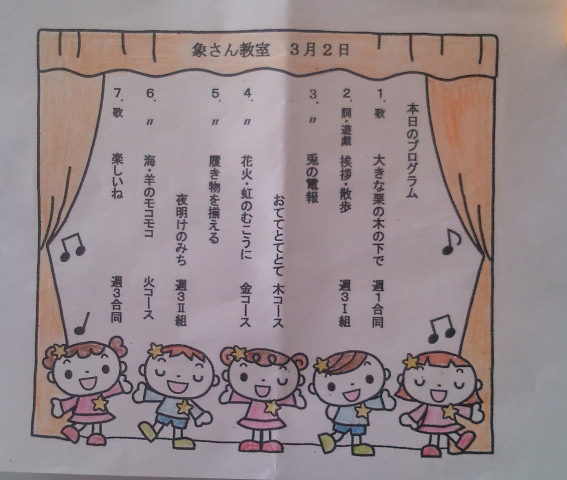 象さん教室　３月２日
本日のプログラム
１．歌　大きな栗の木の下で　週１合同
２．詞・遊戯　挨拶・散歩　週３Ⅰ組
３．〃　兎の電報
おててとてとて　木コース
４．〃　花火・虹のむこうに　金コース
５．〃　履き物を揃える
夜明けのみち　週３Ⅱ組
６．〃　海・羊のモコモコ　火コース
７．歌　楽しいね　週３合同